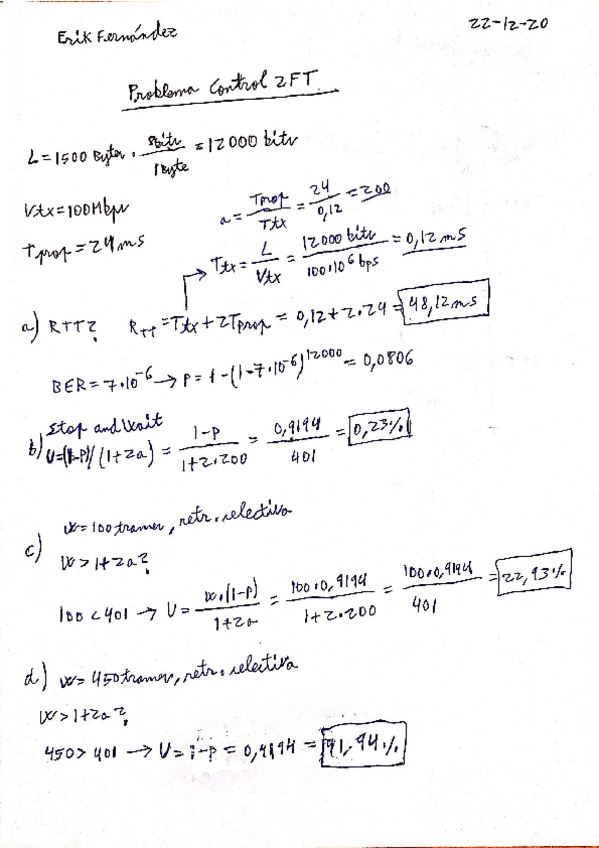 Erik Fernández
22-12-20
Problema Control 2FT
L = 1500 Bytes · 8bits / 1Byte = 12000 bits
Vtx = 100Mbps
Tprop = 24ms
a = Tprop / Ttx = 24 / 0,12 = 200
Ttx = L / Vtx = 12000 bits / 100·10^6 bps = 0,12 ms
a) RTT? RTT = Ttx + 2Tprop = 0,12 + 2·24 = 48,12 ms
BER = 7·10^-6 → p = 1-(1-7·10^-6)^12000 = 0,0806
b) Stop and Wait
U = (1-p)/(1+2a) = 1-p / 1+2·200 = 0,9194 / 401 = 0,23%
c) w = 100 tramas, retr. selectiva
W > 1+2a?
100 < 401 → U = w·(1-p) / 1+2a = 100·0,9194 / 1+2·200 = 100·0,9194 / 401 = 22,93%
d) w = 450 tramas, retr. selectiva
W > 1+2a?
450 > 401 → U = 1-p = 0,9194 = 91,94%